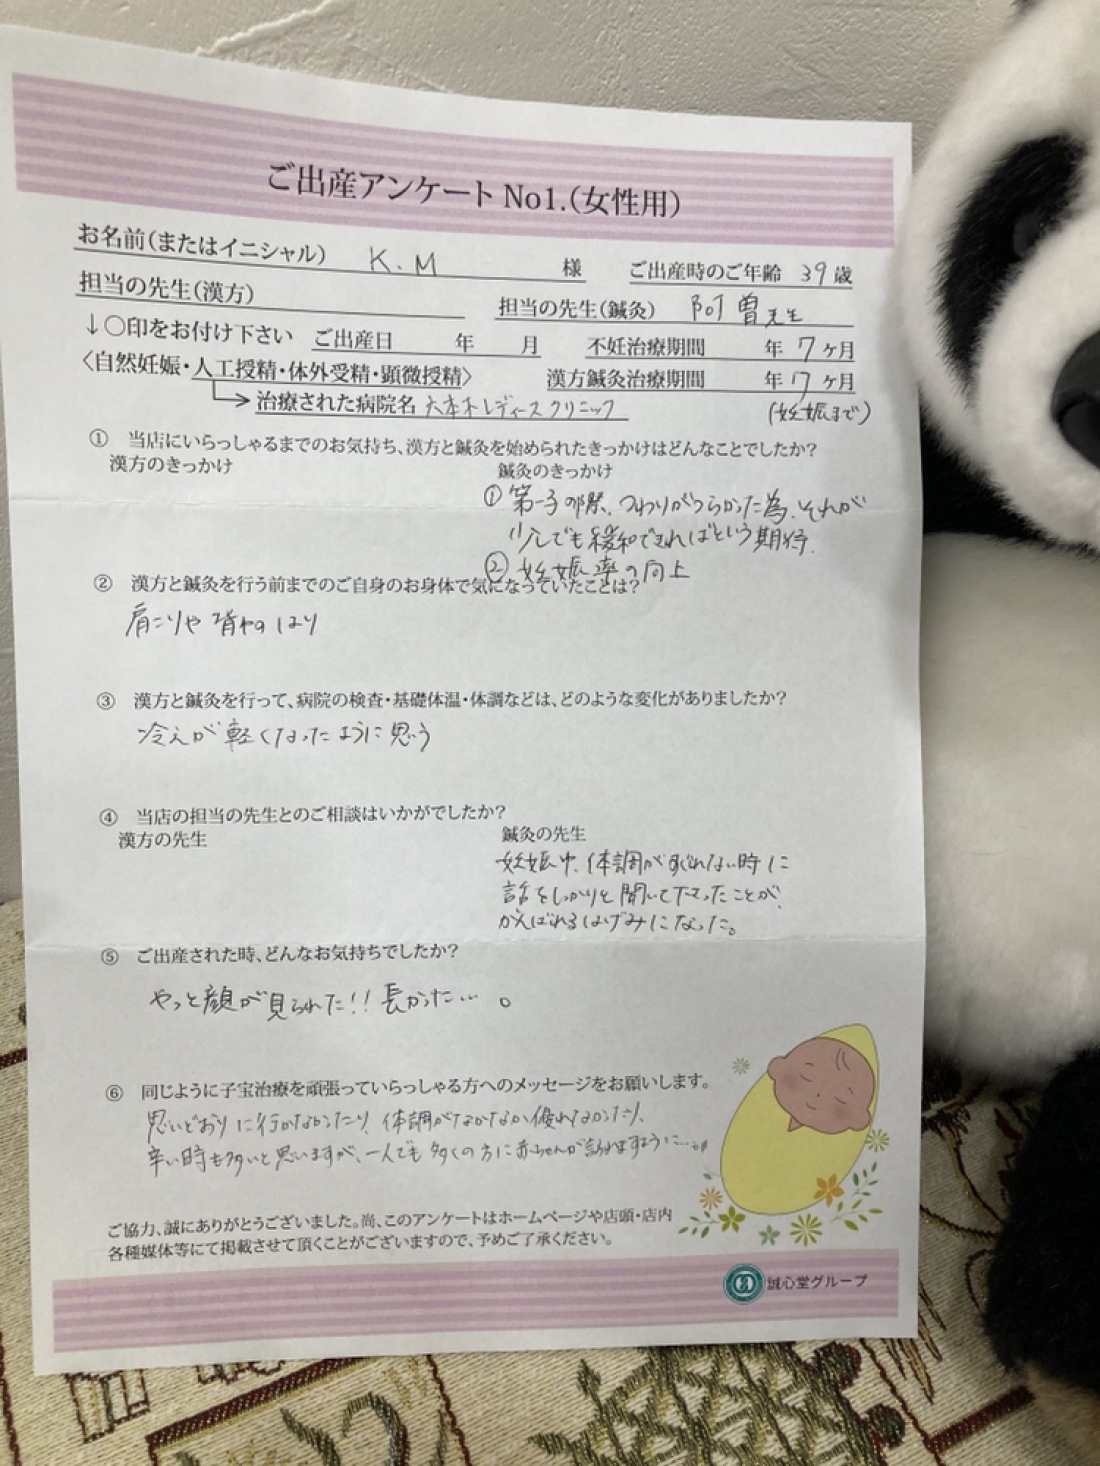 ご出産アンケート No1.(女性用)
お名前(またはイニシャル) K.M 様 ご出産時のご年齢 39歳
担当の先生(漢方) 担当の先生(鍼灸) 阿曽先生
↓○印をお付け下さい ご出産日 年 月 不妊治療期間 年 7ヶ月
〈自然妊娠・人工授精・体外受精・顕微授精〉 漢方鍼灸治療期間 年 7ヶ月
治療された病院名 六本木レディースクリニック (妊娠まで)
① 当店にいらっしゃるまでのお気持ち、漢方と鍼灸を始められたきっかけはどんなことでしたか?
漢方のきっかけ 鍼灸のきっかけ
① 第一子の際、つわりがつらかった為、それが
少しでも緩和できればという期待。
② 妊娠率の向上
② 漢方と鍼灸を行う前までのご自身のお身体で気になっていたことは?
肩こりや背中のはり
③ 漢方と鍼灸を行って、病院の検査・基礎体温・体調などは、どのような変化がありましたか?
冷えが軽くなったように思う
④ 当店の担当の先生とのご相談はいかがでしたか?
漢方の先生 鍼灸の先生
妊娠中、体調がすぐれない時に
話をしっかりと聞いて下さったことが、
がんばれるはげみになった。
⑤ ご出産された時、どんなお気持ちでしたか?
やっと顔が見られた!!長かった…。
⑥ 同じように子宝治療を頑張っていらっしゃる方へのメッセージをお願いします。
思いどおりに行かなかったり、体調がなかなか優れなかったり、
辛い時も多いと思いますが、一人でも多くの方に赤ちゃんが訪れますように…。
ご協力、誠にありがとうございました。尚、このアンケートはホームページや店頭・店内
各種媒体等にて掲載させて頂くことがございますので、予めご了承ください。
誠心堂グループ